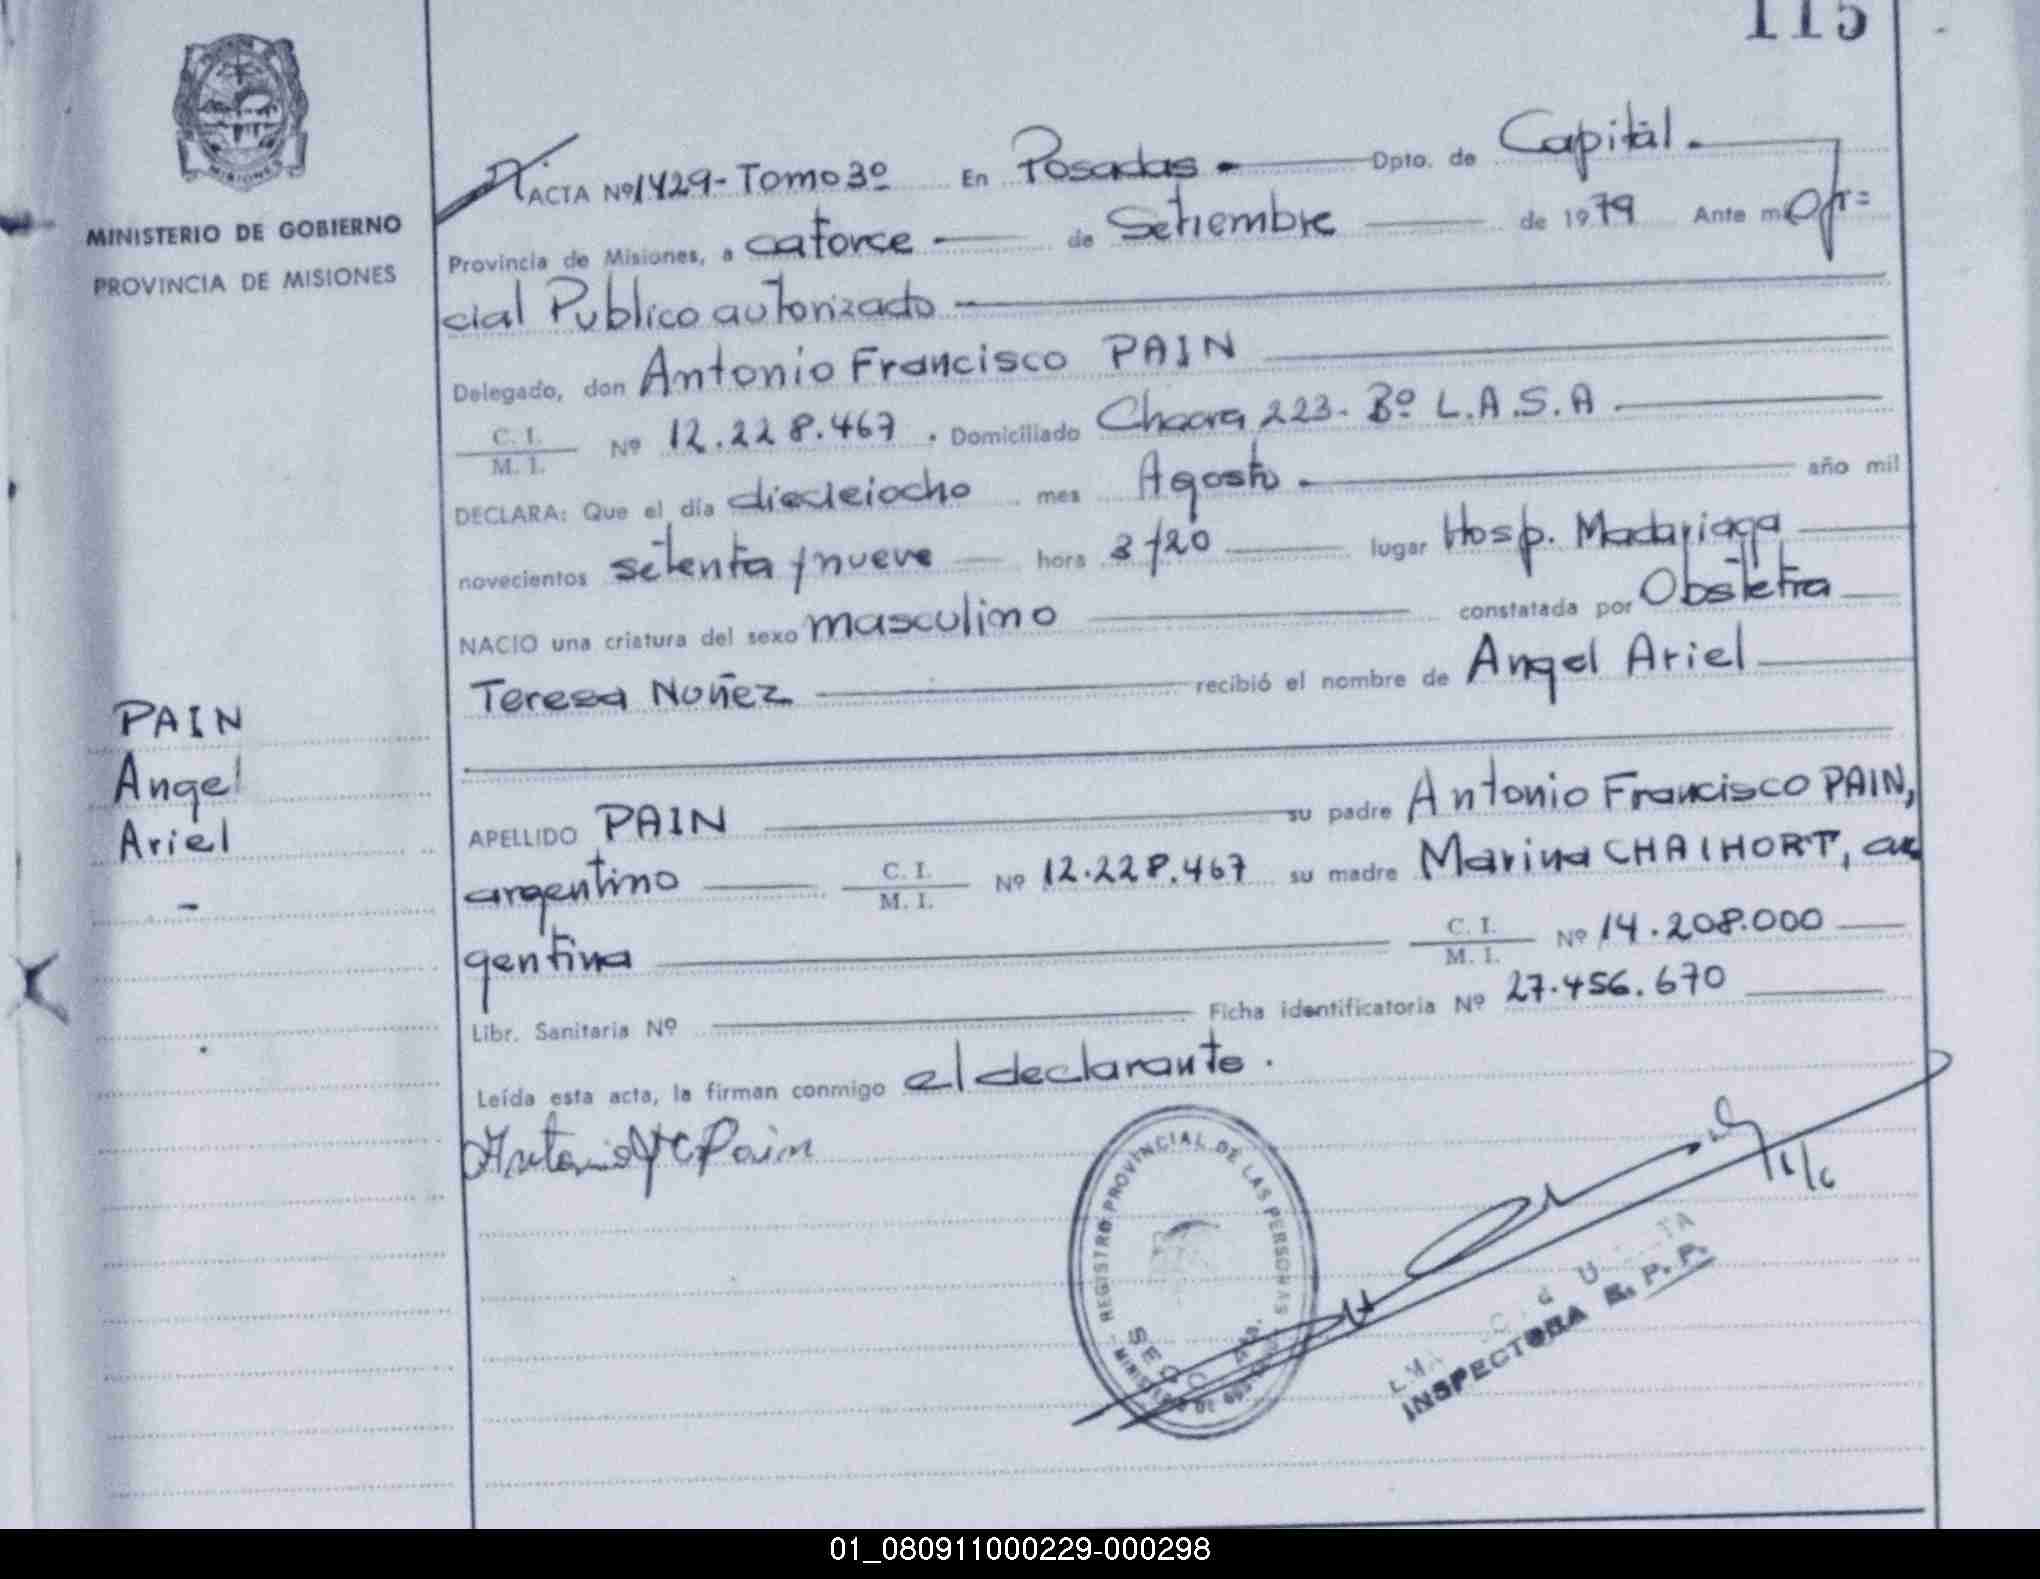 115
MISIONES
MINISTERIO DE GOBIERNO
PROVINCIA DE MISIONES
ACTA Nº 1429- Tomo 3º En Posadas Dpto. de Capital
Provincia de Misiones, a catorce de Setiembre de 1979 Ante mí Ofi=
cial Publico autorizado
Delegado, don Antonio Francisco PAIN
C. I.
M. I. Nº 12.228.467. Domiciliado Chacra 223- Bº L.A.S.A
DECLARA: Que el día dieciocho mes Agosto año mil
novecientos setenta y nueve hora 3/20 lugar Hosp. Madariaga
NACIO una criatura del sexo masculino constatada por Obstetra
Teresa Nuñez recibió el nombre de Angel Ariel
PAIN
Angel
Ariel
-
APELLIDO PAIN su padre Antonio Francisco PAIN,
argentino C. I.
M. I. Nº 12.228.467 su madre Marina CHAIHORT, ar
gentina C. I.
M. I. Nº 14.208.000
Libr. Sanitaria Nº Ficha identificatoria Nº 27.456.670
Leída esta acta, la firman conmigo el declarante.
Antonio Fco Pain
REGISTRO PROVINCIAL DE LAS PERSONAS
INSPECTORA R. P. P.
01_080911000229-000298